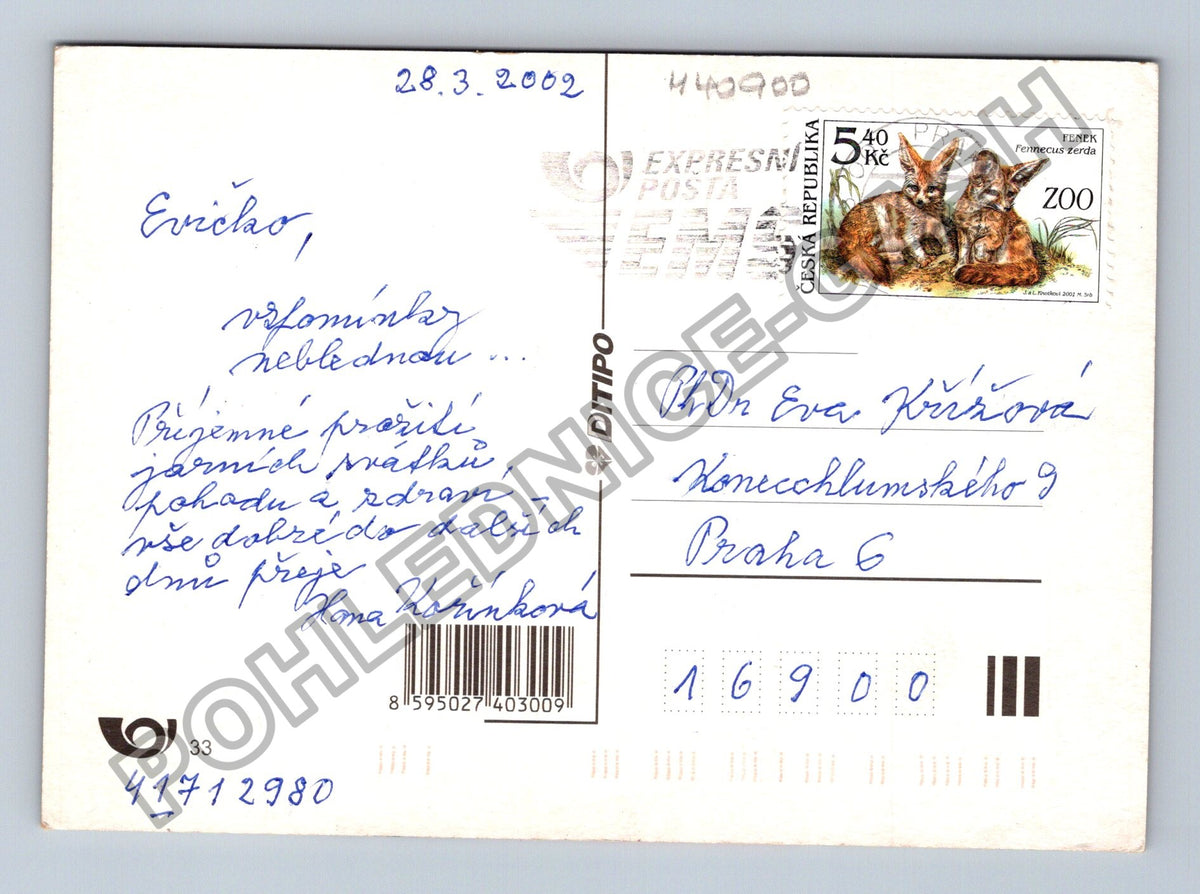 28.3.2002
440900
Evičko,
vzpomínky
neblednou ...
Příjemné prožití
jarních svátků,
pohodu a zdraví -
vše dobré do dalších
dnů přeje
Hana Kořínková
8 595027 403009
33
41712980
DITIPO
EXPRESNÍ
POŠTA
EMS
ČESKÁ REPUBLIKA
5 40
Kč
FENEK
Fennecus zerda
ZOO
J. a L. Knotkovi 2001 M. Srb
PhDr Eva Křížová
Konecchlumského 9
Praha 6
16900
POHLEDNICE-CASH